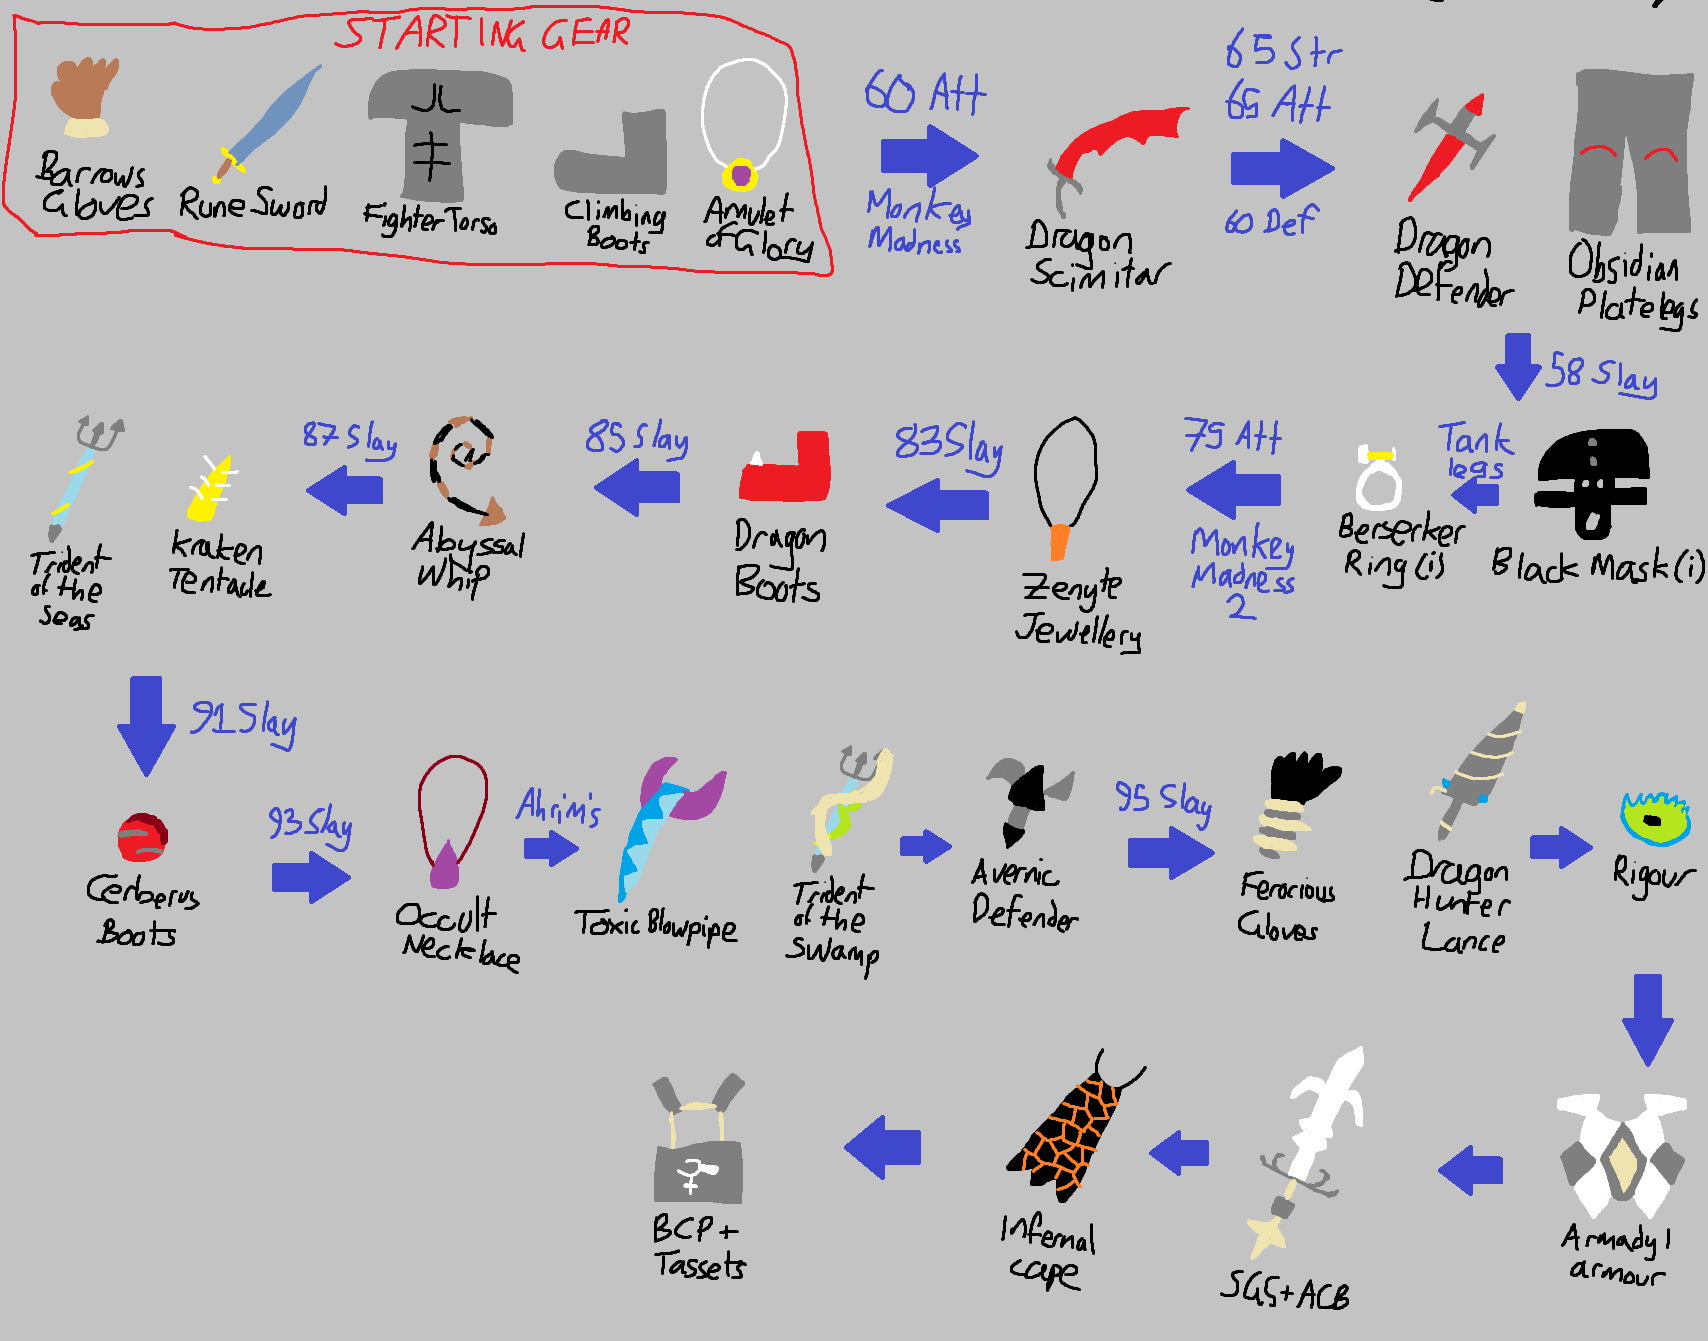 STARTING GEAR
Barrows
Gloves
Rune Sword
Fighter Torso
Climbing
Boots
Amulet
of Glory
60 Att
Monkey
Madness
Dragon
Scimitar
65 Str
65 Att
60 Def
Dragon
Defender
Obsidian
Platelegs
58 Slay
Black Mask (i)
Tank
legs
Berserker
Ring (i)
75 Att
Monkey
Madness
2
Zenyte
Jewellery
83 Slay
Dragon
Boots
85 Slay
Abyssal
Whip
87 Slay
Kraken
Tentacle
Trident
of the
Seas
91 Slay
Cerberus
Boots
93 Slay
Occult
Necklace
Ahrim's
Toxic Blowpipe
Trident
of the
Swamp
Avernic
Defender
95 Slay
Ferocious
Gloves
Dragon
Hunter
Lance
Rigour
Armadyl
armour
SGS + ACB
Infernal
cape
BCP +
Tassets